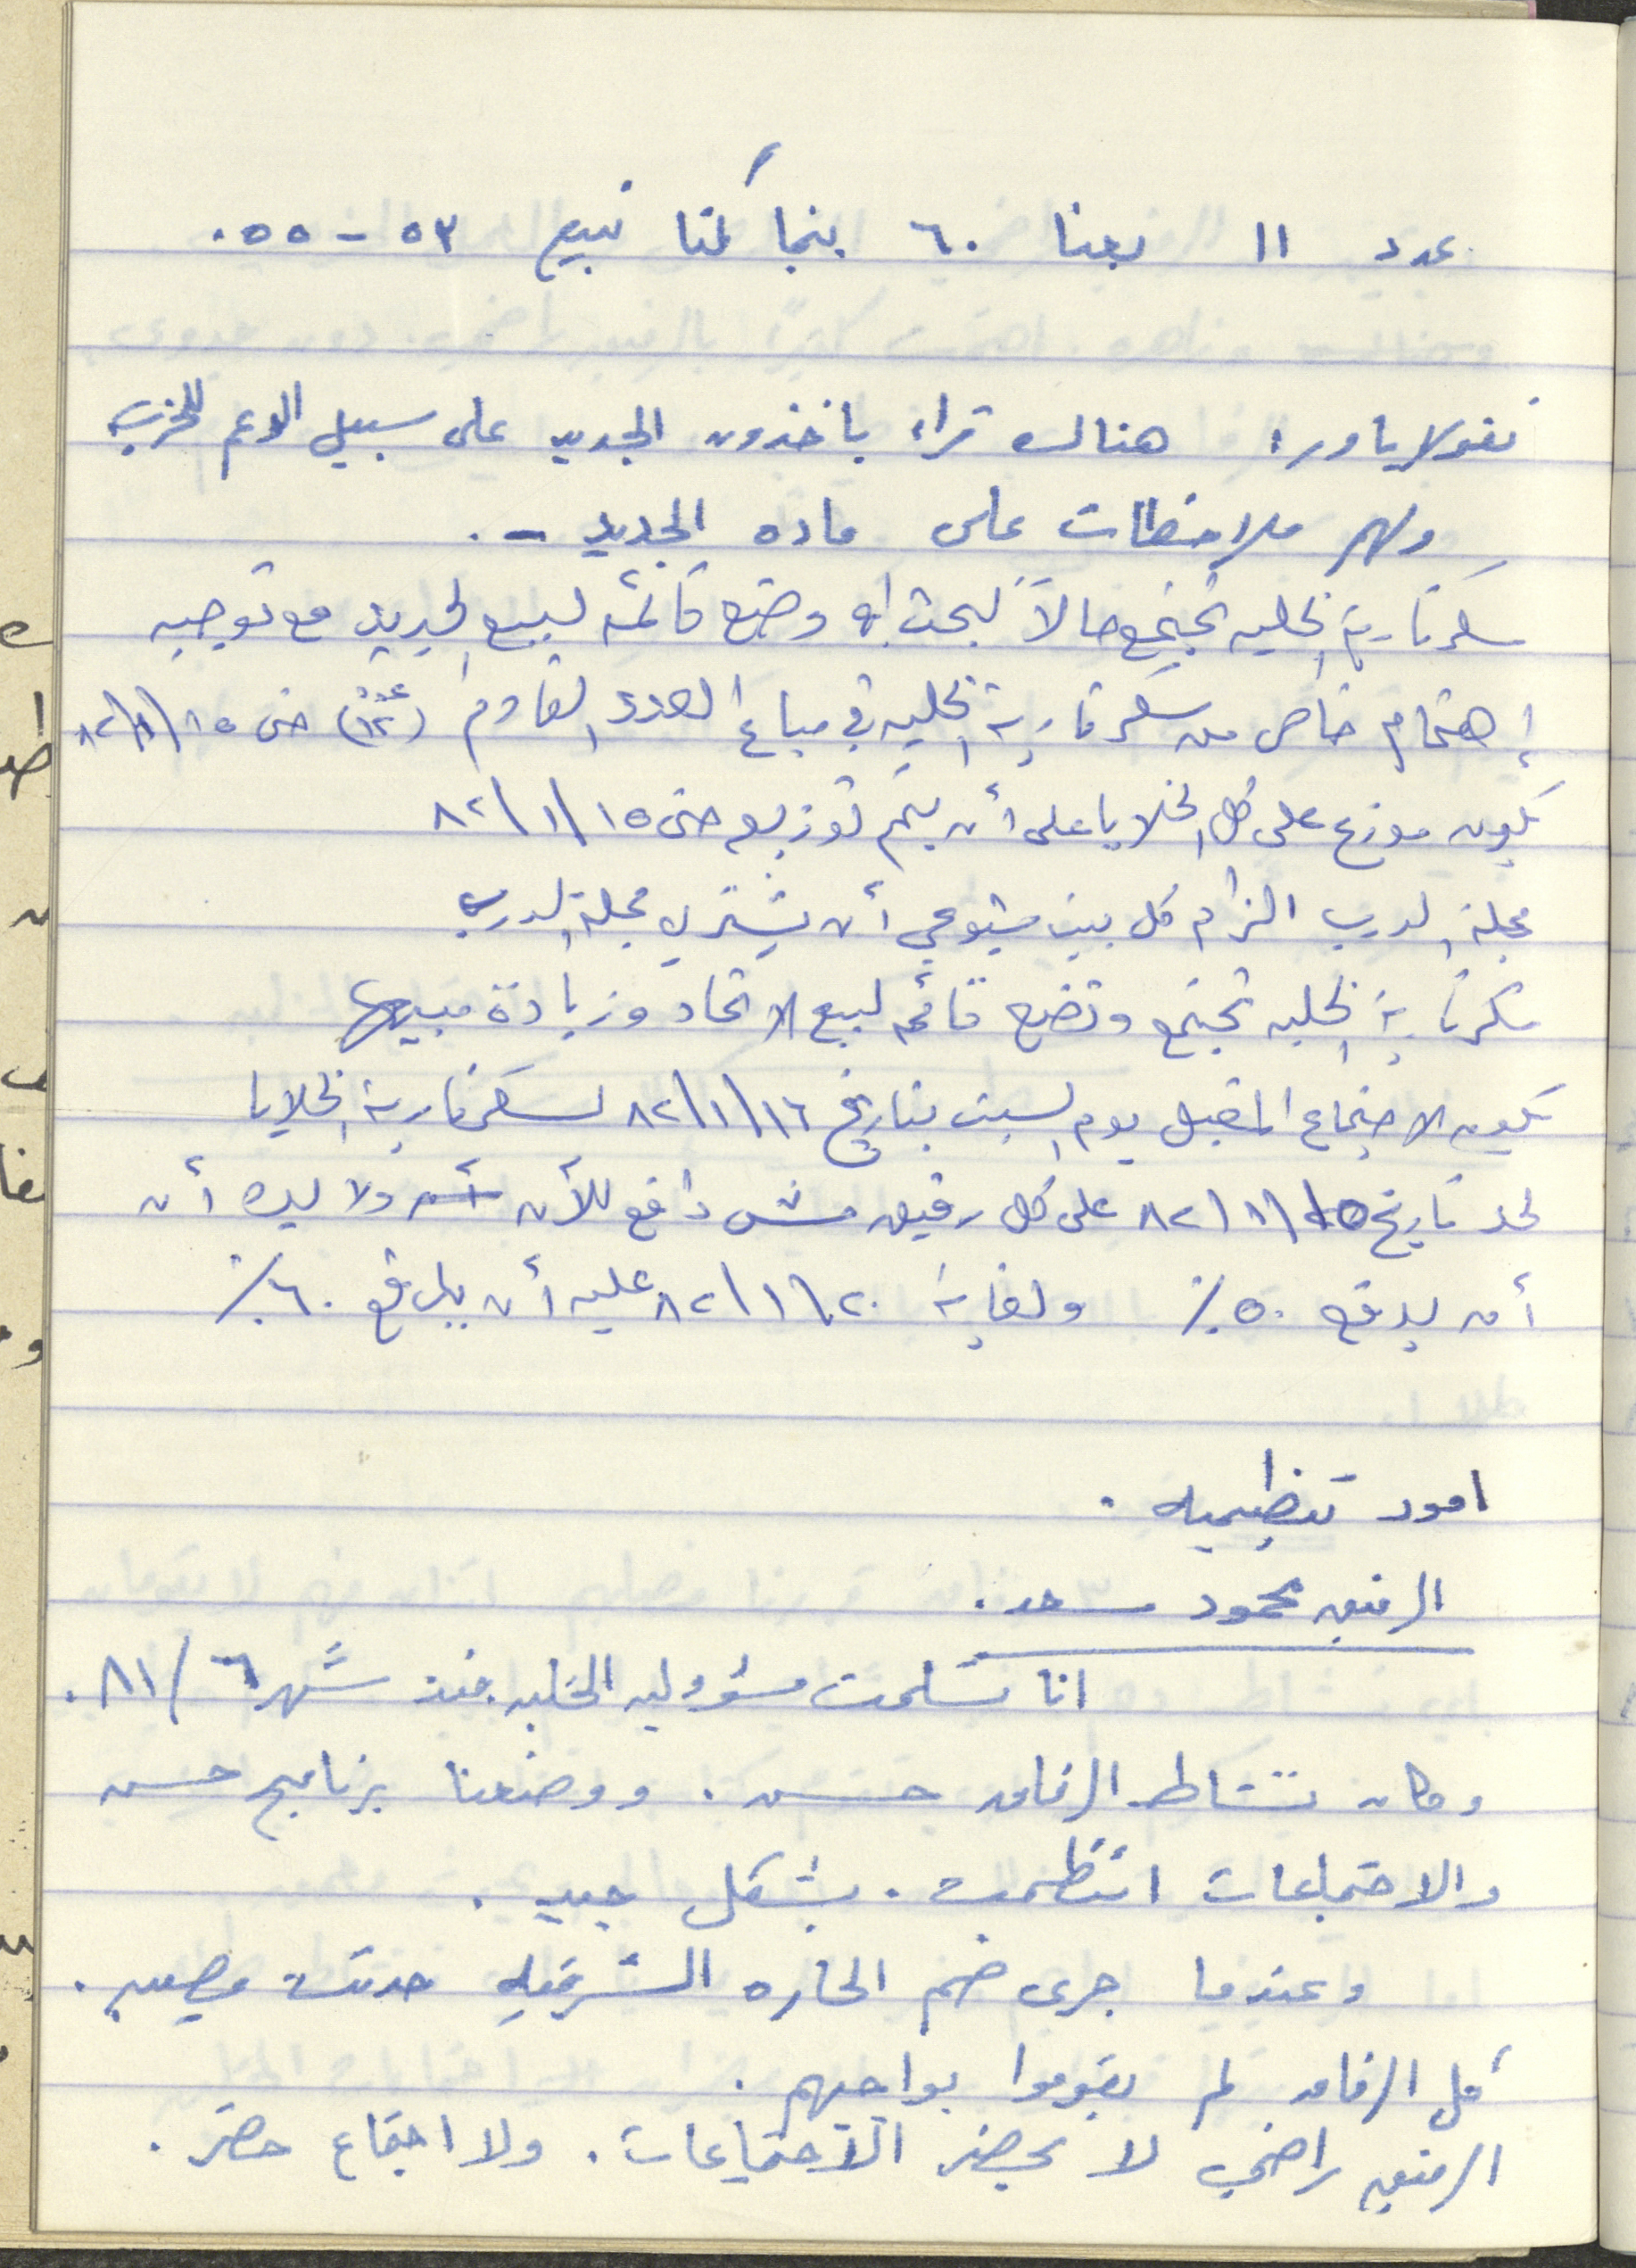 عدد ١١ بعنا ٦٠ بينما كنا نبيع ٥٣ - ٥٥.
نقولا ياور: هناك قراء ياخذون الجديد على سبيل الدعم للحزب
ولهم ملاحظات على ماده الجديد -.
سكرتارية الخليه تجتمع حالاً لبحث وضع قائمة لبيع الجديد مع توجيه
إهتمام خاص من سكرتارية الخليه في مباع العدد القادم (عدد ١٢) حتى ١٥/١/٨٢
يكون موزع على كل الخلايا على أن يتم توزيعه حتى ١٥/١/٨٢
مجلة الدرب الزام كل بيت شيوعي أن يشتري مجلة الدرب
سكرتارية الخليه تجتمع وتضع قائمه لبيع الاتحاد وزيادة مبيعها
يكون الاجتماع المقبل يوم السبت بتاريخ ١٦/١/٨٢ لسكرتارية الخلايا
لحد تاريخ ١٥/١/٨٢ على كل رفيق مش دافع للأن ولا ليره أن
أن يدفع ٥٠٪ ولغاية ٢٠/١/٨٢ عليه أن يدفع ٦٠٪
امور تنظيميه.
الرفيق محمود سعد.
انا تسلمت مسؤوليه الخليه منذ شهر ٦/٨١.
وكان نشاط الرفاق حسن. ووضعنا برنامج حسن
والاجتماعات انتظمت. بشكل جيد.
وعندما جرى ضم الحاره الشرقيه حدثت مصيبه.
كل الرفاق لم يقوموا بواجبهم.
الرفيق راضي لا يحضر الاجتماعات. ولا اجتماع حضر.